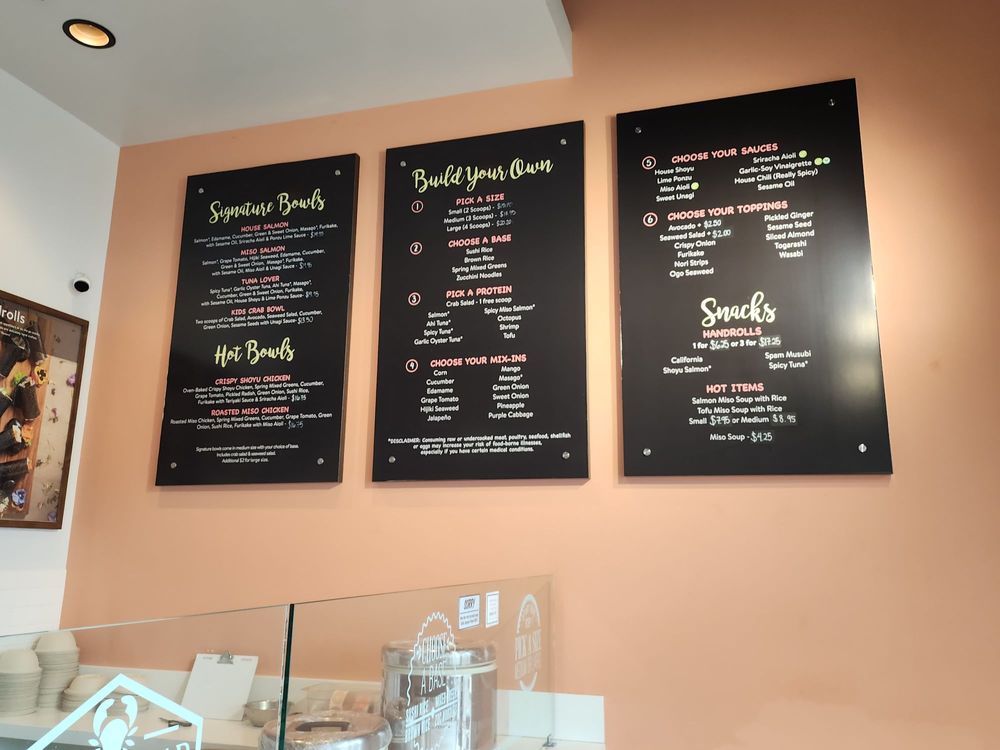 drolls
Signature Bowls
HOUSE SALMON
Salmon*, Edamame, Cucumber, Green & Sweet Onion, Masago*, Furikake,
with Sesame Oil, Sriracha Aioli & Ponzu Lime Sauce -
MISO SALMON
Salmon*, Grape Tomato, Hijiki Seaweed, Edamame, Cucumber,
Green & Sweet Onion, Masago*, Furikake,
with Sesame Oil, Miso Aioli & Unagi Sauce -
TUNA LOVER
Spicy Tuna*, Garlic Oyster Tuna, Ahi Tuna*, Masago*,
Cucumber, Green & Sweet Onion, Furikake,
with Sesame Oil, House Shoyu & Lime Ponzu Sauce -
KIDS CRAB BOWL
Two scoops of Crab Salad, Avocado, Seaweed Salad, Cucumber,
Green Onion, Sesame Seeds with Unagi Sauce - $13.50
Hot Bowls
CRISPY SHOYU CHICKEN
Oven-Baked Crispy Shoyu Chicken, Spring Mixed Greens, Cucumber,
Grape Tomato, Pickled Radish, Green Onion, Sushi Rice,
Furikake with Teriyaki Sauce & Sriracha Aioli - $16.75
ROASTED MISO CHICKEN
Roasted Miso Chicken, Spring Mixed Greens, Cucumber, Grape Tomato, Green
Onion, Sushi Rice, Furikake with Miso Aioli - $16.75
Signature bowls come in medium size with your choice of base.
Includes crab salad & seaweed salad.
Additional $2 for large size.
Build Your Own
1 PICK A SIZE
Small (2 Scoops) -
Medium (3 Scoops) -
Large (4 Scoops) -
2 CHOOSE A BASE
Sushi Rice
Brown Rice
Spring Mixed Greens
Zucchini Noodles
3 PICK A PROTEIN
Crab Salad - 1 free scoop
Salmon* Spicy Miso Salmon*
Ahi Tuna* Octopus
Spicy Tuna* Shrimp
Garlic Oyster Tuna* Tofu
4 CHOOSE YOUR MIX-INS
Corn Mango
Cucumber Masago*
Edamame Green Onion
Grape Tomato Sweet Onion
Hijiki Seaweed Pineapple
Jalapeño Purple Cabbage
*DISCLAIMER: Consuming raw or undercooked meat, poultry, seafood, shellfish
or eggs may increase your risk of food-borne illnesses,
especially if you have certain medical conditions.
5 CHOOSE YOUR SAUCES
House Shoyu Sriracha Aioli
Lime Ponzu Garlic-Soy Vinaigrette
Miso Aioli House Chili (Really Spicy)
Sweet Unagi Sesame Oil
6 CHOOSE YOUR TOPPINGS
Avocado + $2.50 Pickled Ginger
Seaweed Salad + $2.00 Sesame Seed
Crispy Onion Sliced Almond
Furikake Togarashi
Nori Strips Wasabi
Ogo Seaweed
Snacks
HANDROLLS
1 for $6.25 or 3 for $17.25
California Spam Musubi
Shoyu Salmon* Spicy Tuna*
HOT ITEMS
Salmon Miso Soup with Rice
Tofu Miso Soup with Rice
Small $7.95 or Medium $8.95
Miso Soup - $4.25
SORRY
CHOOSE
A BASE
SUSHI RICE
BROWN RICE
PICK A SIZE